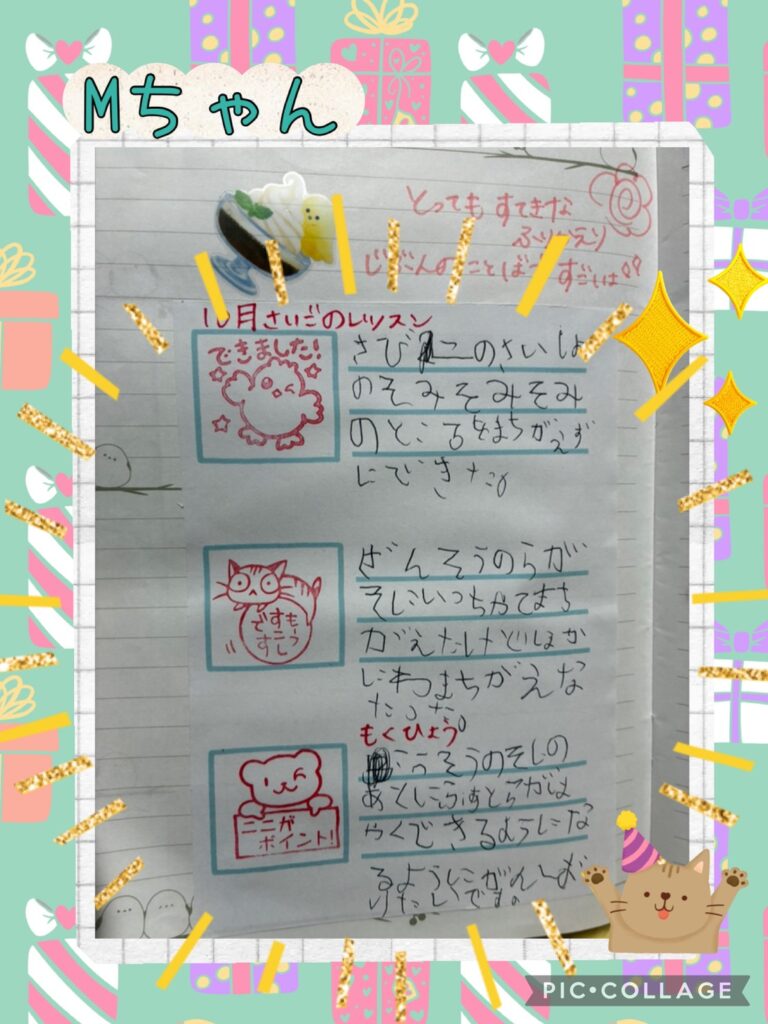 Mちゃん
とっても すてきな
ふりかえり
じぶんのことばで すごいは!!
10月さいごのレッスン
できました!
さびこのさいしょ
のそみそみそみ
のところをまちがえず
にできた。
もうすこしです
ぜんそうのらが
そにいっちゃてまち
がえたけどほか
にわまちがえな
かった。
もくひょう
ここがポイント!
こうそうのそしの
あとにふぁとらがは
やくできるようにな
るようにがんば
りたいです。
PIC•COLLAGE